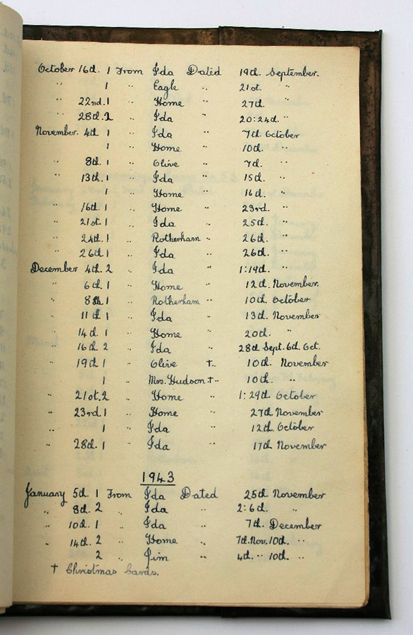 October 16th. 1 From Ida Dated 19th September.
" 1 " Eagle " 21st. "
" 22nd. 1 " Home " 27th "
" 28th. 2 " Ida " 20: 24th "
November. 4th 1 " Ida " 7th October
1 " Home " 10th. "
" 8th. 1 " Clive " 7th. "
" 13th. 1 " Ida " 15th. "
1 " Home " 16th. "
" 16th 1 " Home " 23rd. "
" 21st. 1 " Ida " 25th. "
" 24th 1 " Rotherham " 26th. "
" 26th 1 " Ida " 26th. "
December 4th. 2 " Ida " 1: 19th. "
" 6th 1 " Home " 12th November.
" 8th 1 " Rotherham " 10th October
" 11th 1 " Ida " 13th November
" 14th 1 " Home " 20th. "
" 16th 2 " Ida " 28th Sept. 6th Oct.
" 19th 1 " Clive †" 10th November
1 " Mrs. Hudson †" 10th. "
" 21st. 2 " Home " 1: 24th October
" 23rd 1 " Home " 27th November
1 " Ida " 12th October
" 28th. 1 " Ida " 17th November
1943
January 5th 1 From Ida Dated 25th November
" 8th 2 " Ida " 2: 6th "
" 10th. 1 " Ida " 7th December
" 14th. 2 " Home " 7th. Nov. 10th. "
2 " Jim " 4th. " 10th. "
† Christmas Cards.